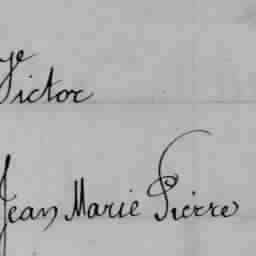 Victor
Jean Marie Pierre